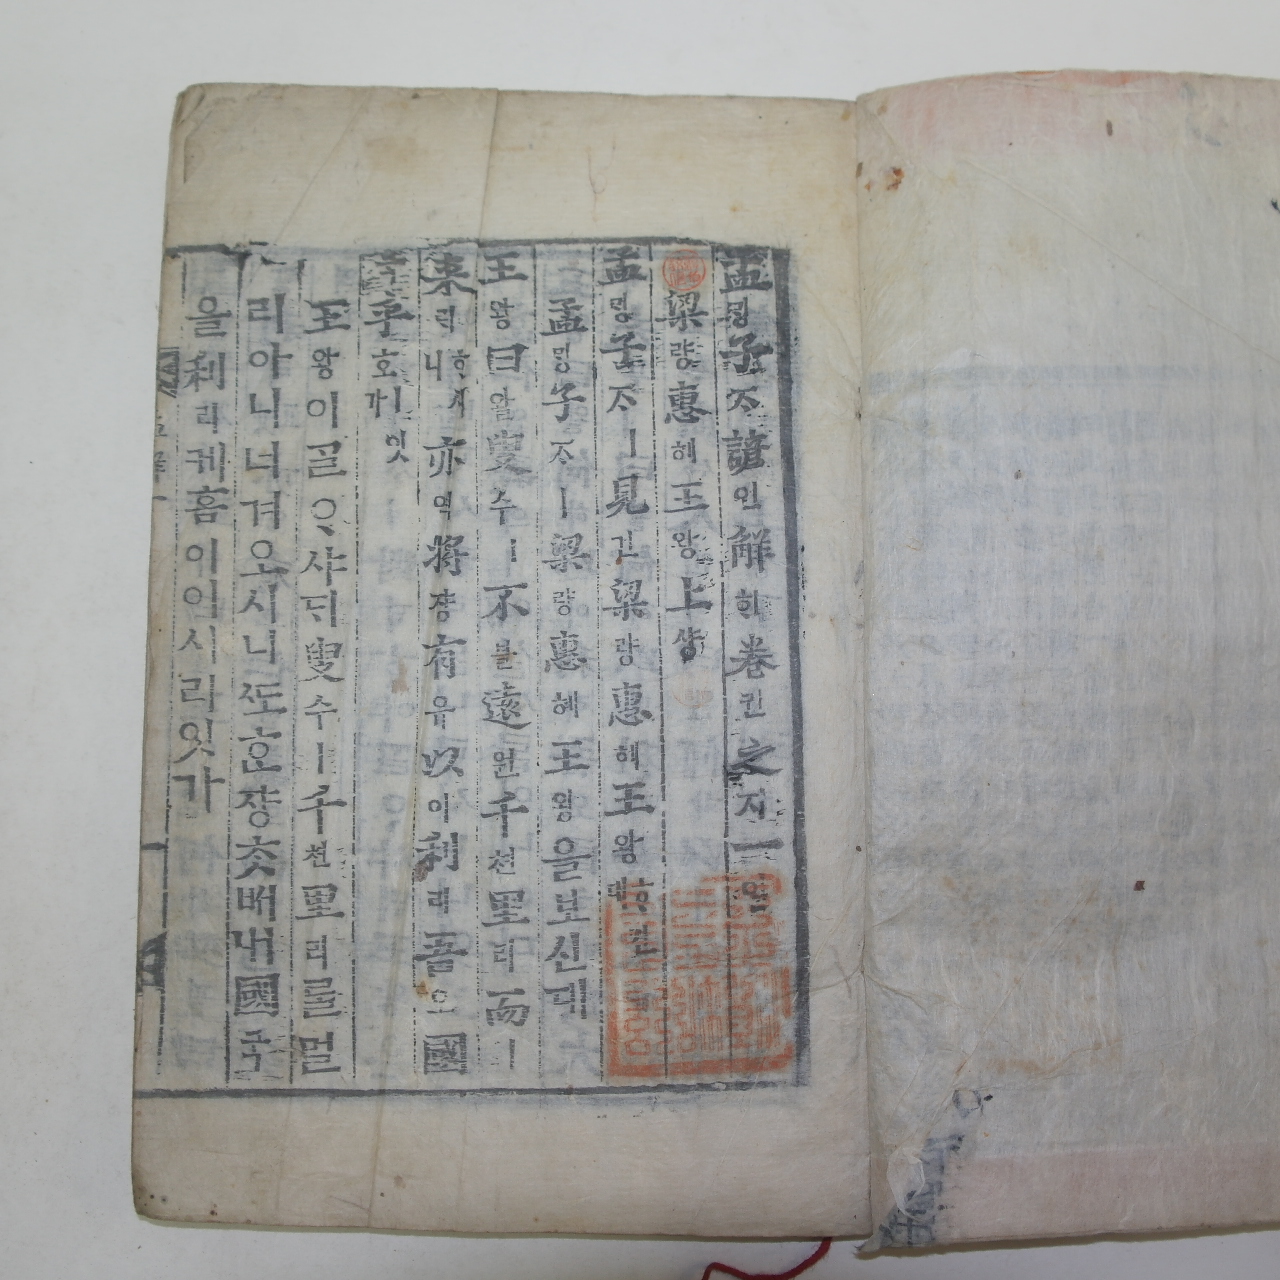 孟ᄆᆡᆼ子ᄌᆞ諺언解ᄒᆡ卷권之지一일
梁량惠혜王왕上샹
孟ᄆᆡᆼ子ᄌᆞㅣ見견梁량惠혜王왕ᄒᆞ신대
孟ᄆᆡᆼ子ᄌᆞㅣ梁량惠혜王왕을보신대
王왕曰왈叟수ㅣ不블遠원千쳔里리而ᅀᅵ
來ᄅᆡᄒᆞ시니亦역將쟝有유以이利리吾오國국
乎호ㅣ잇가
王왕이ᄀᆞᆯᄋᆞ샤ᄃᆡ叟수ㅣ千쳔里리를멀
리아니너겨오시니ᄯᅩᄒᆞᆫ쟝ᄎᆞᆺᄡᅥ내國국
을利리케홈이이시리잇가